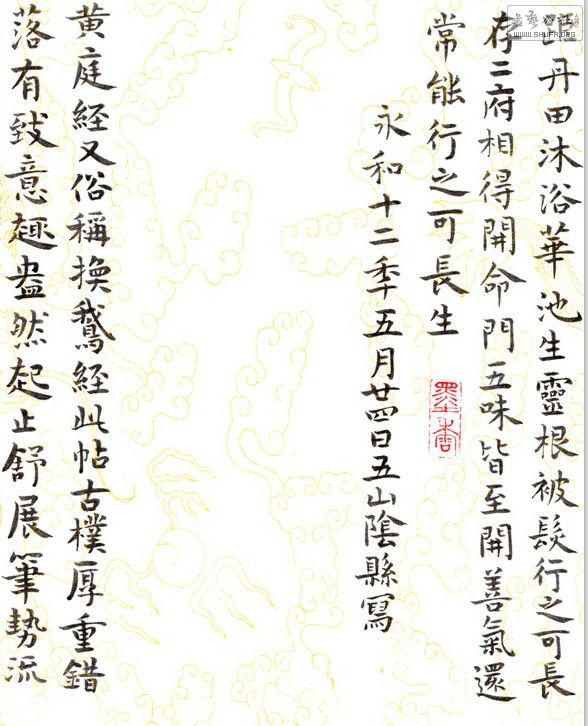 丹田沐浴華池生靈根被髮行之可長
存二府相得開命門五味皆至開善氣還
常能行之可長生
墨香
永和十二秊五月廿四日五山陰縣寫
黄庭経又俗稱換鵝経此帖古樸厚重錯
落有致意趣盎然起止舒展筆勢流
WWW.SHUFA.ORG